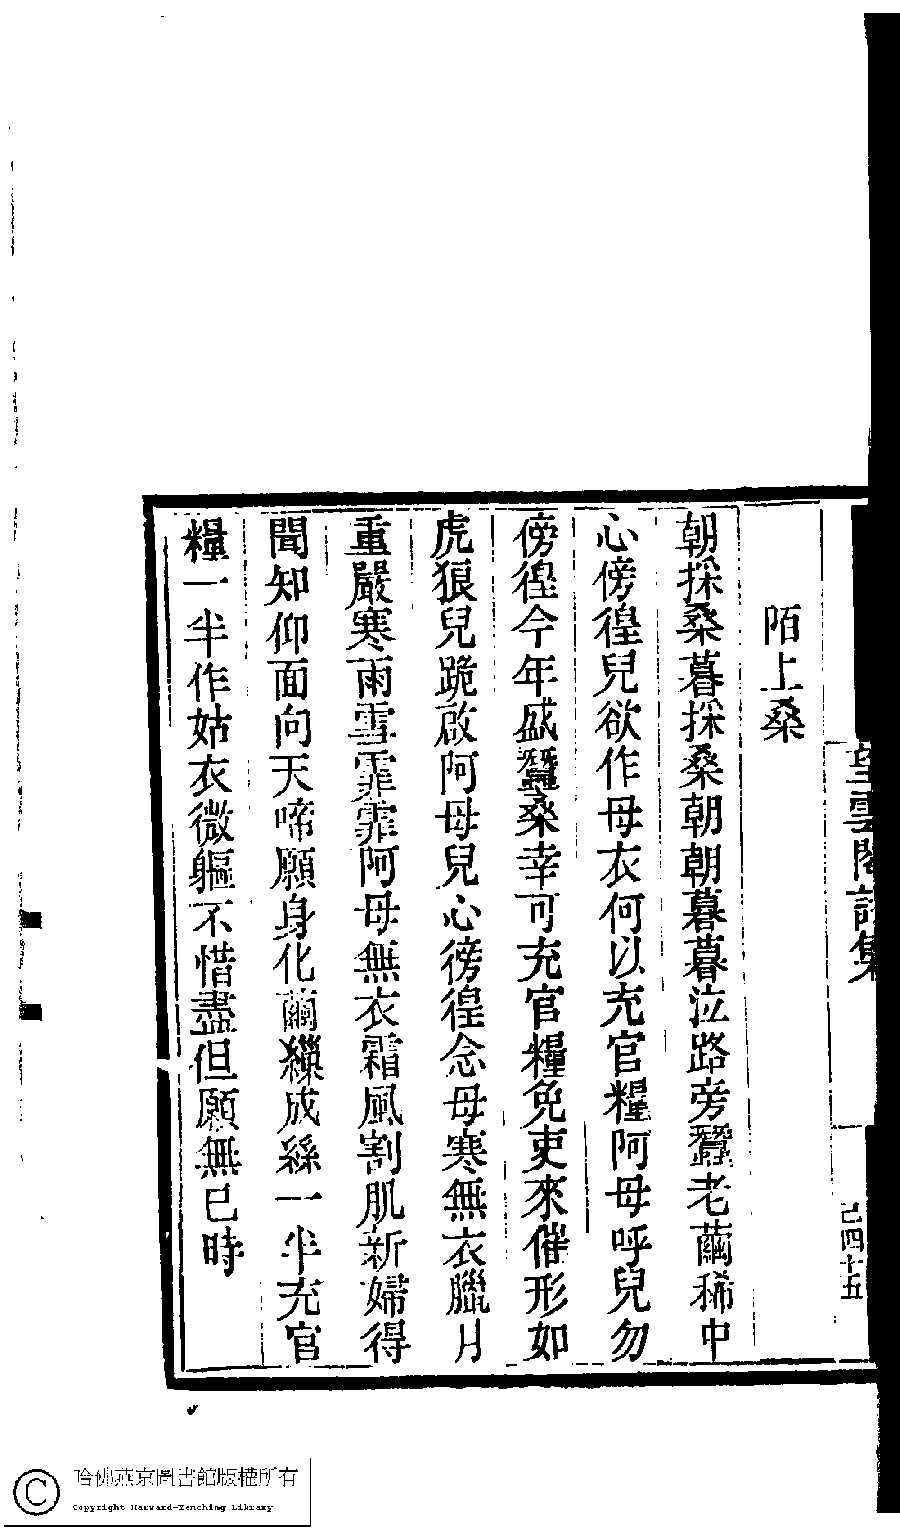 望雲閣詩集
己四十五
陌上桑
朝採桑暮採桑朝朝暮暮泣路旁蠶老繭稀中
心傍徨兒欲作母衣何以充官糧阿母呼兒勿
傍徨今年盛蠶桑幸可充官糧免吏來催形如
虎狼兒跪啟阿母兒心徬徨念母寒無衣臘月
重嚴寒雨雪霏霏阿母無衣霜風割肌新婦得
聞知仰面向天啼願身化繭繅成絲一半充官
糧一半作姑衣微軀不惜盡但願無已時
哈佛燕京圖書館版權所有
Copyright Harvard-Yenching Library